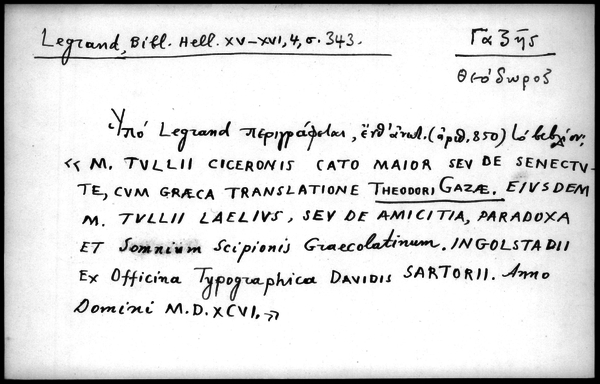 Legrand, Bibl. Hell. XV–XVI, 4, σ. 343.
Γαζῆς
Θεόδωρος
Ὑπό Legrand περιγράφεται, ἔνθ' ἀνωτ. (ἀριθ. 850) τό βιβλίον:
« M. TVLLII CICERONIS CATO MAIOR SEV DE SENECTV-
TE, CVM GRÆCA TRANSLATIONE THEODORI GAZÆ. EIVSDEM
M. TVLLII LAELIVS, SEV DE AMICITIA, PARADOXA
ET Somnium Scipionis Graecolatinum. INGOLSTADII
Ex Officina Typographica DAVIDIS SARTORII. Anno
Domini M.D.XCVI. »